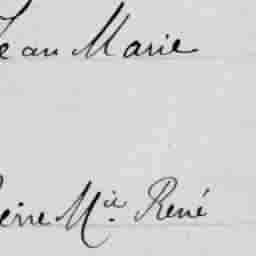 Jean Marie
Pierre Mie. René